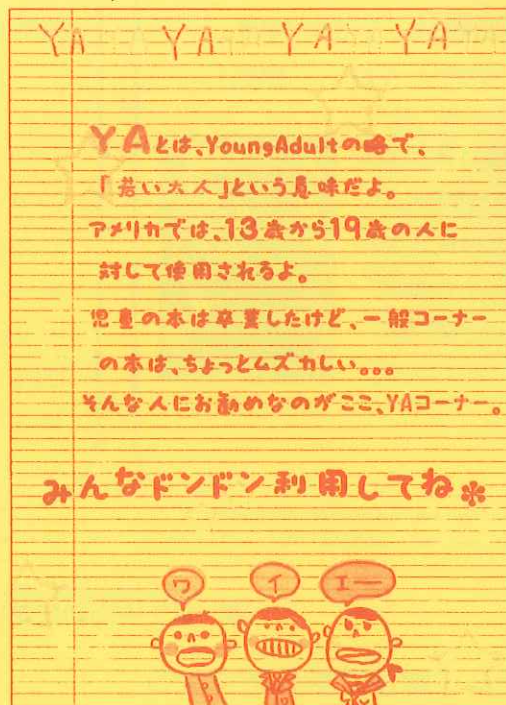 YA YA YA YA
YAとは、YoungAdultの略で、
「若い大人」という意味だよ。
アメリカでは、13歳から19歳の人に
対して使用されるよ。
児童の本は卒業したけど、一般コーナー
の本は、ちょっとムズカしい。。。
そんな人にお勧めなのがここ、YAコーナー。
みんなドンドン利用してね*
ワ イ エー